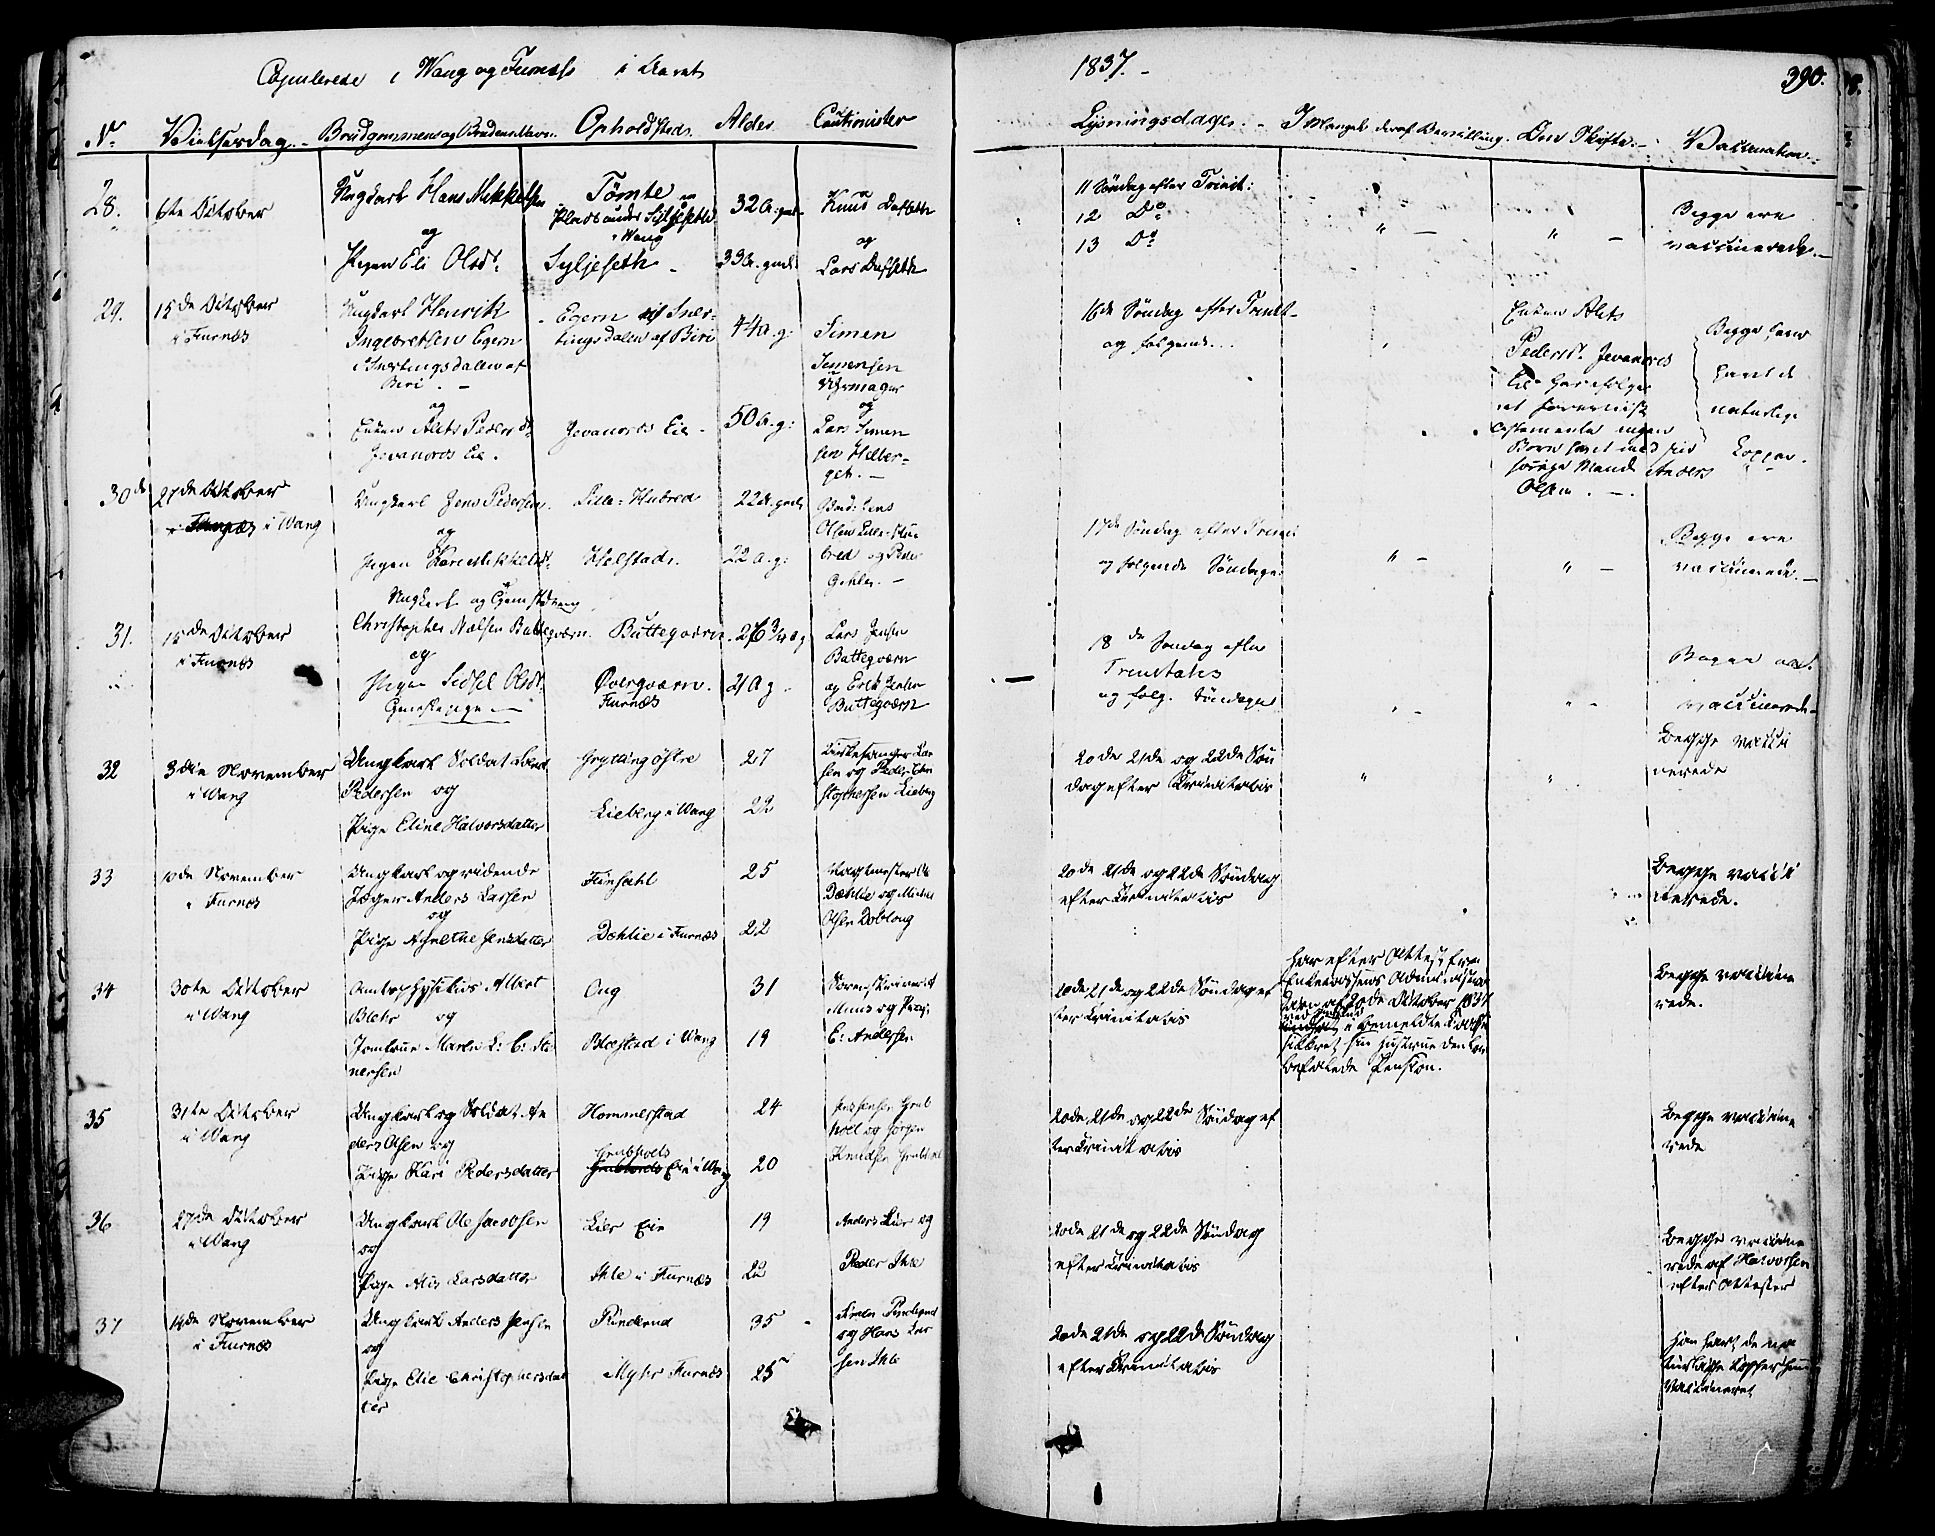 Copulerede i Wang og Furnæs i Aaret 1837. 390.
No Vielsesdag. Brudgommens og Brudens Navn. Opholdsted. Alder Cautionister Lysningsdage. I Mangel deraf Bevilling. Om Skifte. Vaccination.
28. 6te October
Ungkarl Hans Mikkelsen
og
Pigen Eli Olsdr.
Tømte en
Plads under Syljeseth
i Wang
Syljeseth
32 A. gml.
33 A. gml.
Knud Dafseth
og
Lars Dafseth
11 Søndag efter Trinit:
12 Do
13 Do
" "
Begge ere
vaccinerede.
29. 15de October
i Furnæs
Ungkarl Henrik
Ingebretsen Egern
Snertingsdalen af
Biri.
og
Enken Alets Pedersdr
Jevanords Eie.
Egern i Sner-
tingsdalen af Biri
Jevanords Eie
44 A. g:
50 A. g:
Simen
Simensen
Uhrmager
og
Lars Simen
sen Hilber-
geh.
16de Søndag efter Trinit
og følgende...
Enken Alets
Pedersdr. Jevanords
Eie har ifølge
Testamente ingen
Børn havt med sin
forrige Mand Anders
Olsen.
Begge have
havt de
naturlige
Kopper.
30de 27de October
i Wang
Ungkarl Jens Pedersen.
og
Pigen Kari Mikkelsdr.
Lille-Hubred
Kjelstad.
22 A. gml
22 A. g:
Olsen Lille-Hu-
bred og Peder
17de Søndag efter Trinit:
og følgende Søndage.
" "
Begge ere
vaccinerede.
31. 15de October
i Furnæs
Ungkarl og
Christopher Nielsen Buttegværn.
og
Pigen Sidsel Olsdr.
Buttegværn.
Øvergværn.
Furnæs
26 3/4 A g
21 A g
Lars Jensen
Buttegværn
og Erik Jensen
Buttegværn
18de Søndag efter
Trinitatis
og følg. Søndage
" "
Begge ere
vaccinerede
32 3die November
i Wang
Ungkarl Soldat
Pedersen og
Pige Eline Halvorsdatter
Grytting østre
Lieberg i Wang
27
22
Kirkesanger Lar
sen og Peder Chri
stophersen Lieberg
20de 21de og 22de Søn
dag efter Trinitatis
" "
Begge vacci
nerede
33 10de November
i Furnæs
Ungkarl og ridende
Jæger Anders Larsen
og
Pige Agnethe Jensdatter
Finsahl
Dæhlie i Furnæs
25
22
Dæhlie og
Olsen Doblong
20de 21de og 22de Søndag
efter Trinitatis
Begge vacci
nerede.
34 30te October
i Wang
Amtsphysikus Albert
Blehr og
Jomfrue Maren L: C: Ste
nersen
Oug
Blæstad i Wang
31
19
Sorenskriver
Muns og Proc:
E: Andersen
20de 21de og 22de Søndag ef
ter Trinitatis
Har efter Attest fra
Enkekassens Administra
tion af 20de October 1837
ved Indskud
i bemeldte Casse
sikkret sin Hustrue den
befalede Pension.
Begge vaccine
rede.
35 31te October
i Wang
Ungkarl og Soldat An
ders Olsen og
Pige Kari Pedersdatter
Hommerstad
Grubhols
Eie i Wang
24
20
Jens Jensen Grub
hoel og Jørgen
Knudsen Grubhol
20de 21de og 22de Søndag ef
ter Trinitatis
Begge vaccine
rede
36 27de October
i Wang
Ungkarl Ole Jacobsen
og
Pige Alis Larsdatter
Lier Eie
Ihle i Furnæs
19
22
Anders Lier og
Peder Ihle
20de 21de og 22de Søndag
efter Trinitatis
Begge vaccine
rede af Halvorsen
efter Attester
37 14de November
i Furnæs
Ungkarl Anders Jensen
og
Pige Elie Christophersdat
ter
Rinderud
Myhr Furnæs
35
25
og Hans Lar
sen Ihle
20de 21de og 22de Søndag
efter Trinitatis
Han havt de na
turlige Kopper hun
vaccineret